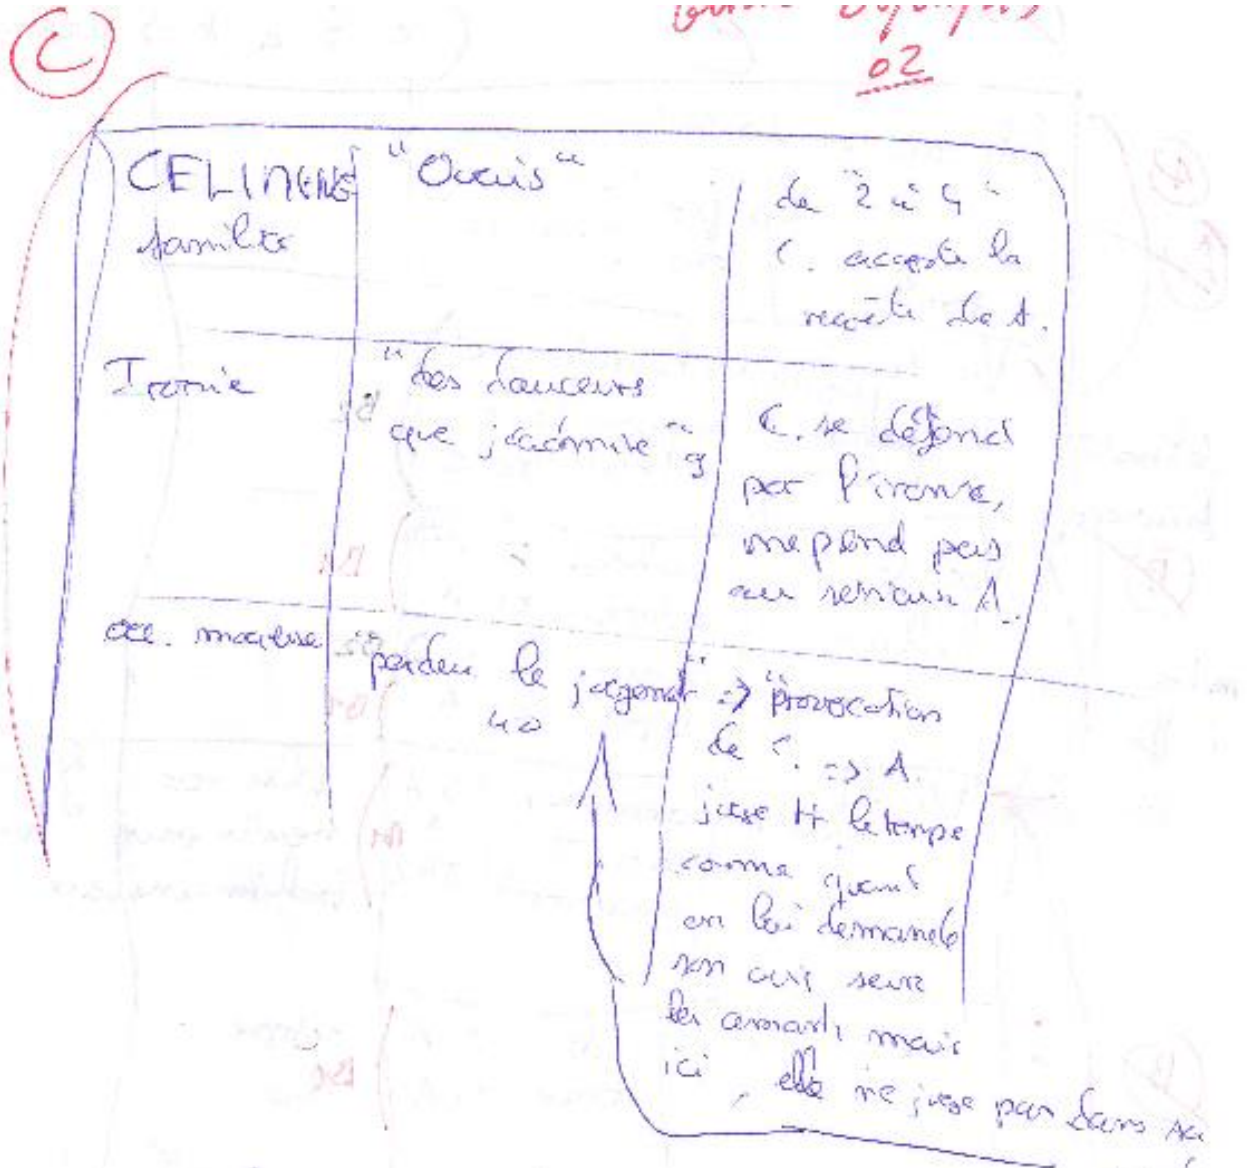 C
02
CELIMENE
"Ouais"
de "2 à 4"
C. accepte la
de A.
Ironie
"des douceurs
que j'admire" 9
C. se défend
par l'ironie,
répond pas
au sérieux A.
perdeu le jugement" => "provocation
40
de C. => A.
juge tt le temps
comme quand
on lui demande
son avis sur
les amants mais
ici, elle ne juge pas dans sa